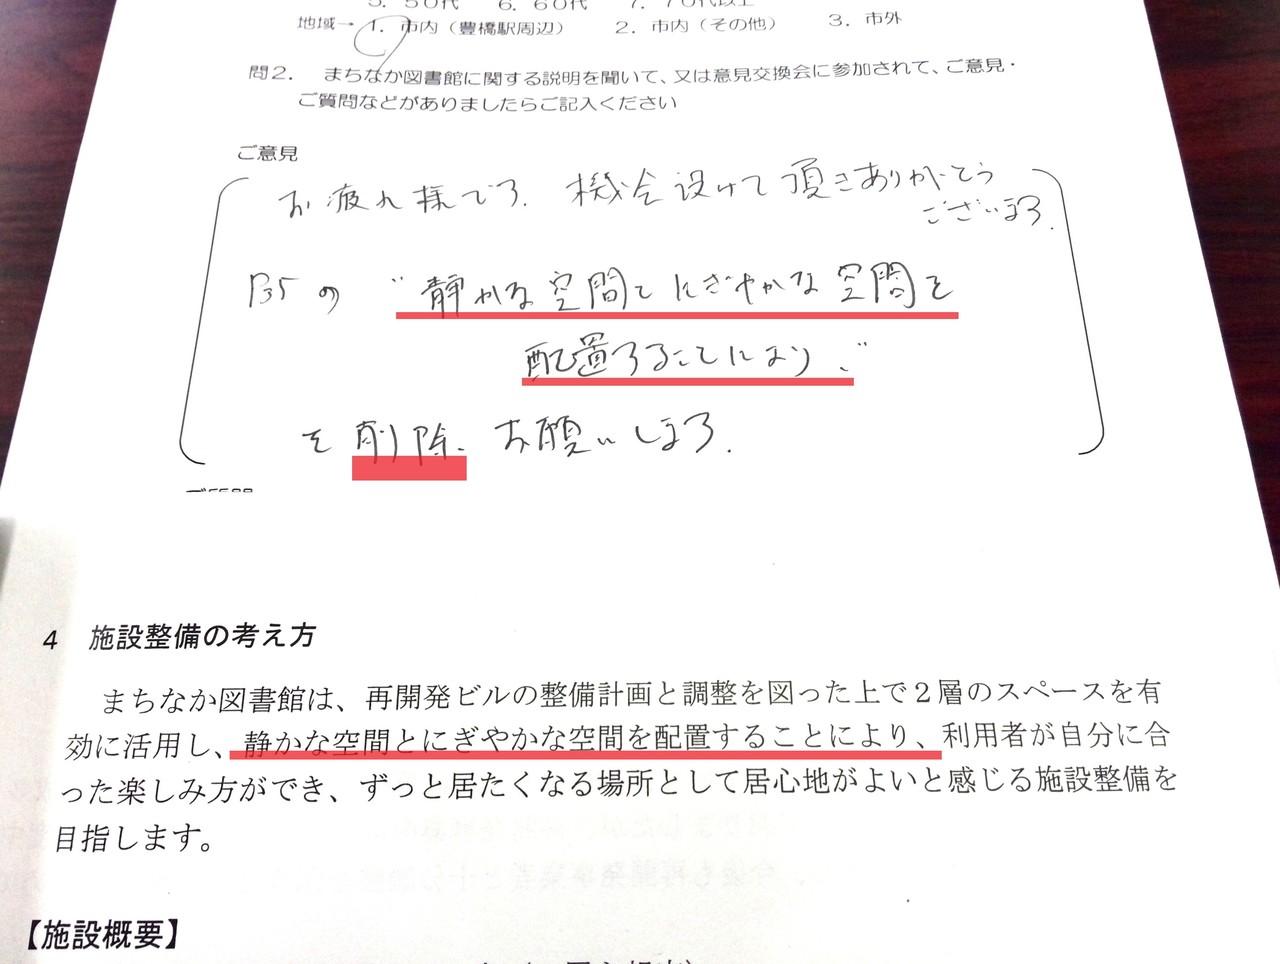 5. 50代 6. 60代 7. 70代以上
地域→ 1. 市内（豊橋駅周辺） 2. 市内（その他） 3. 市外
問2. まちなか図書館に関する説明を聞いて、又は意見交換会に参加されて、ご意見・
ご質問などがありましたらご記入ください
ご意見
お疲れ様です. 機会設けて頂きありがとう
ございます.
P5の “静かな空間とにぎやかな空間を
配置することにより、”
を削除. お願いします.
4 施設整備の考え方
まちなか図書館は、再開発ビルの整備計画と調整を図った上で２層のスペースを有
効に活用し、静かな空間とにぎやかな空間を配置することにより、利用者が自分に合
った楽しみ方ができ、ずっと居たくなる場所として居心地がよいと感じる施設整備を
目指します。
【施設概要】